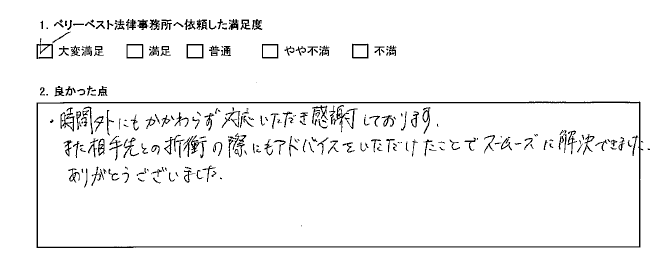 1. ベリーベスト法律事務所へ依頼した満足度
☑ 大変満足 □ 満足 □ 普通 □ やや不満 □ 不満
2. 良かった点
・時間外にもかかわらず対応いただき感謝しております。
また相手先との折衝の際にもアドバイスをいただけたことでスムーズに解決できました。
ありがとうございました。